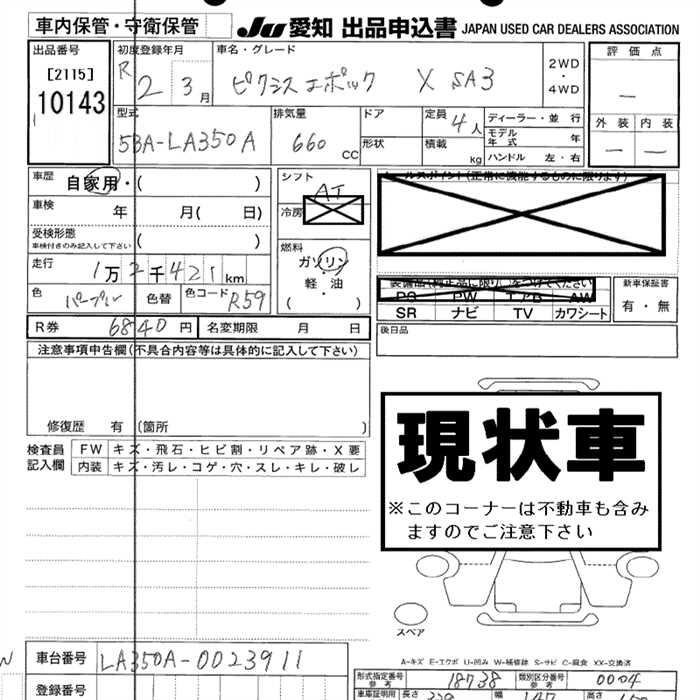 車内保管・守衛保管
JU 愛知 出品申込書 JAPAN USED CAR DEALERS ASSOCIATION
出品番号
[2115]
10143
初度登録年月
R 2 3月
車名・グレード
ピクシスエポック X SA3
2WD・4WD
評価点
—
外装 内装
— —
型式
5BA-LA350A
排気量
660 CC
ドア
形状
定員 4人
積載 kg
ディーラー・並行
モデル年式 年
ハンドル 左・右
車歴 自家用・( )
車検 年 月( 日)
受検形態
車検付きのみ記入して下さい ( )
走行 1万2千421km
色 パープル 色替 色コード R59
シフト AT
冷房
燃料
ガソリン・軽油
( )
セールスポイント(正常に機能するものに限ります)
装備品(純正品に限り)をつけてください
PS PW エアB AW
SR ナビ TV カワシート
新車保証書
有・無
R券 6840円 名変期限 月 日
後日品
注意事項申告欄(不具合内容等は具体的に記入して下さい)
修復歴 有 (箇所 )
検査員記入欄
FW キズ・飛石・ヒビ割・リペア跡・X要
内装 キズ・汚レ・コゲ・穴・スレ・キレ・破レ
現状車
※このコーナーは不動車も含み
ますのでご注意下さい
スペア
A-キズ E-エクボ U-凹み W-補修跡 S-サビ C-腐食 XX-交換済
車台番号 LA350A-0023911
登録番号
型式指定番号 参考 18738 類別区分番号 参考 0004
車庫証明用 長さ 幅 147 高さ